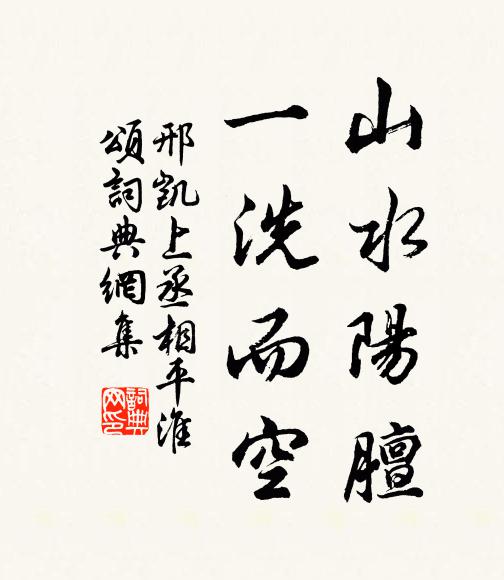 山水陽膻
一洗而空
邢凱上丞相平淮
頌詞典網集
詞典
网印